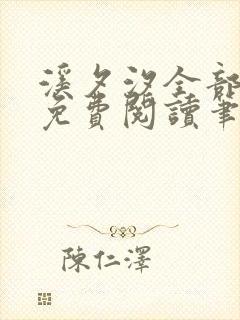 溪夕汐全部
免費閱讀筆
陳仁澤